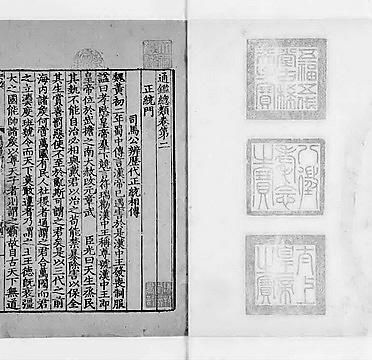 通鑑總類卷第二
正統門
司馬公辨歷代正統相傳
魏黃初二年蜀中傳言漢帝已遇害於是漢中王發喪制服
諡曰孝愍皇帝羣下競言符瑞勸漢中王稱尊號漢中王即
皇帝位於武擔之南大赦改元章武 臣光曰天生烝民
其執不能自治必相與戴君以治之苟能禁暴除害以保全
其生賞善罰惡使不至於亂斯可謂之君矣是以三代之前
海內諸矦何啻萬國有民人社稷者通謂之君合萬國而君
之立法度班號令而天下莫敢違者乃謂之王王德既衰彊
大之國能帥諸矦以尊天子者則謂之霸故自古天下無道
五福五代堂寶
八徵耄念之寶
太上皇帝之寶